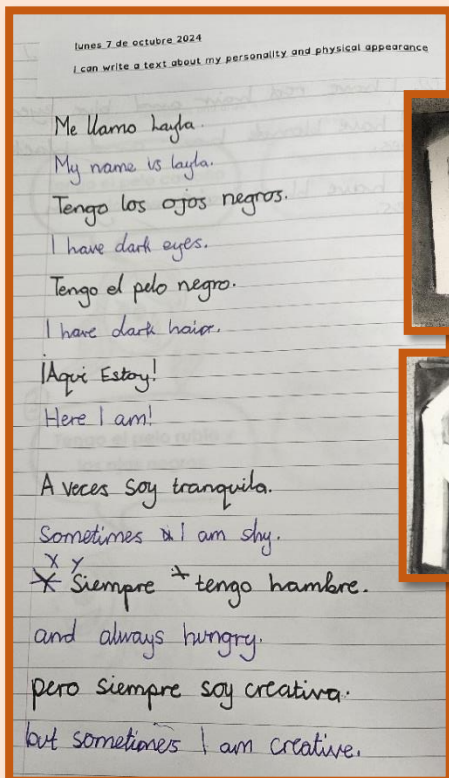 lunes 7 de octubre 2024
I can write a text about my personality and physical appearance
Me llamo Layla.
My name is layla.
Tengo los ojos negros.
I have dark eyes.
Tengo el pelo negro.
I have dark hair.
¡Aquí Estoy!
Here I am!
A veces soy tranquila.
Sometimes I am shy.
X y
Siempre tengo hambre.
and always hungry.
pero siempre soy creativa.
but sometimes I am creative.